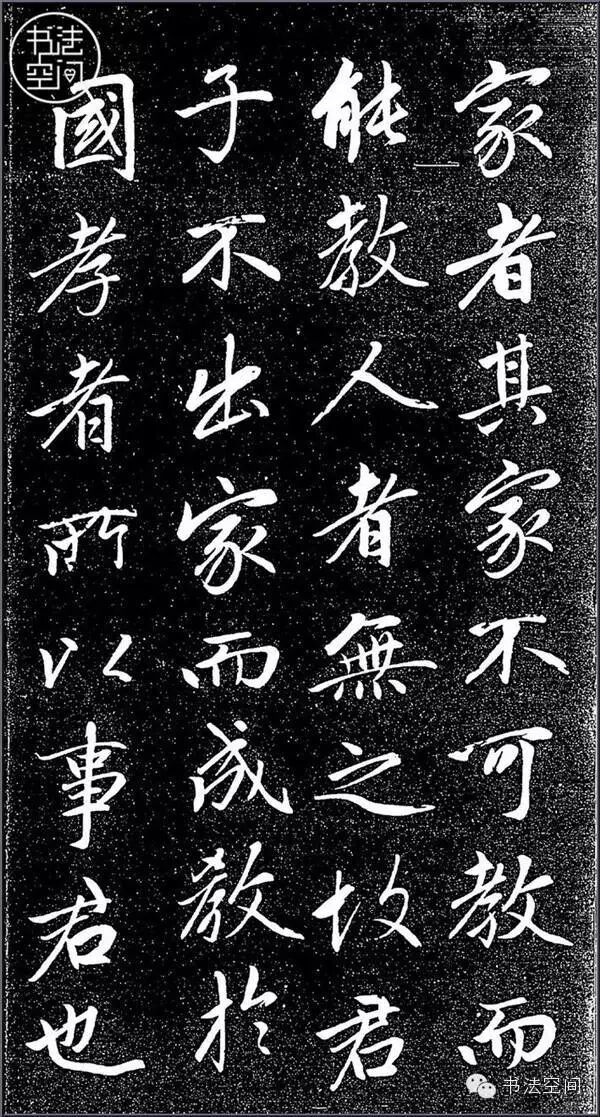 家者其家不可教而
能教人者無之故君
子不出家而成教於
國孝者所以事君也
书法空间
书法空间